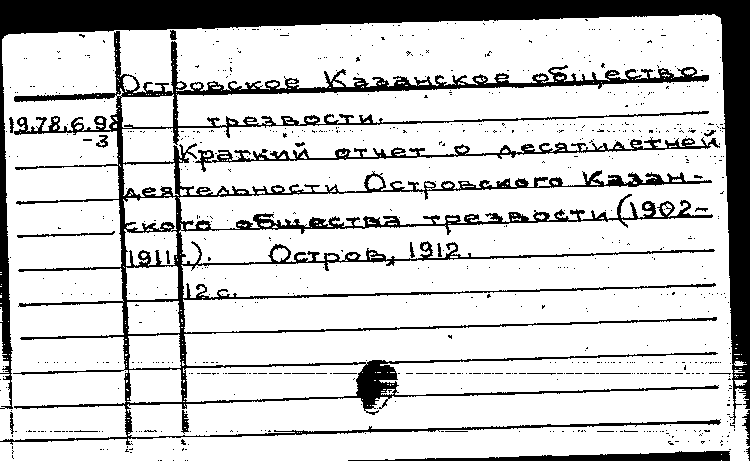 Островское Казанское общество
19.78.6.98- трезвости.
-3
Краткий отчет о десятилетней
деятельности Островского Казан-
ского общества трезвости (1902-
1911г.). Остров, 1912.
12 с.